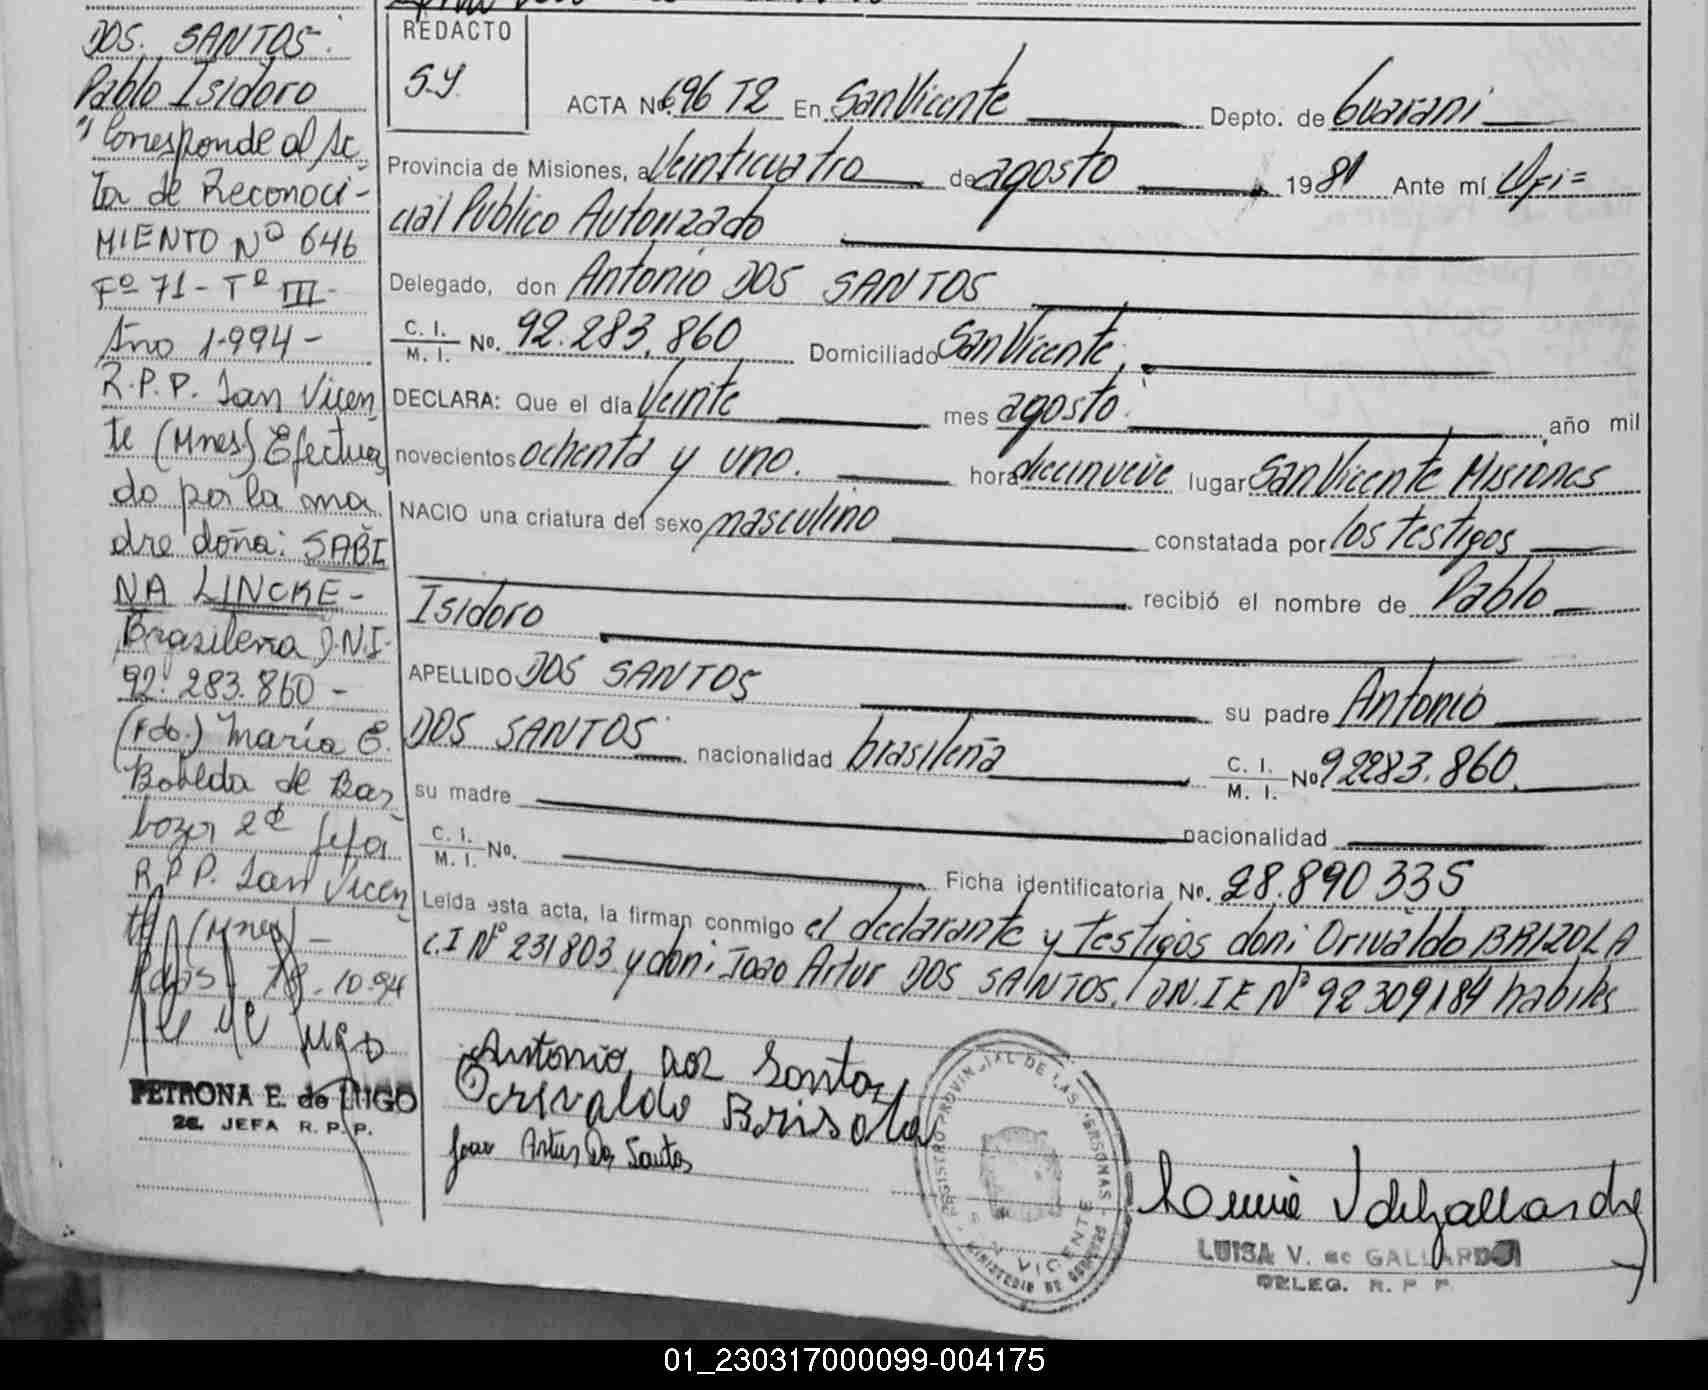 DOS. SANTOS.
Pablo Isidoro
"/ Corresponde al Ac-
ta de Reconoci-
MIENTO Nº 646
Fº 71 - Tº III -
Año 1.994 -
R.P.P. San Vicen-
te (Mnes) Efectua-
do por la ma-
dre doña: SABI-
NA LINCKE -
Brasilena D.N.I.
92.283.860 -
(Fdo.) María E.
Bobleda de Bar-
bozer 2ª Jefa
R.P.P. San Vicen-
te (Mnes) -
Pdas 18.10.94
PETRONA E. de LUGO
2a. JEFA R.P.P.
REDACTO
S.Y.
ACTA No. 696 T2 En San Vicente Depto. de Guarani
Provincia de Misiones, a Veinticuatro de agosto 1981 Ante mí Ofi=
cial Publico Autorizado
Delegado, don Antonio DOS SANTOS
C. I. / M. I. No. 92.283.860 Domiciliado San Vicente
DECLARA: Que el día Veinte mes agosto. año mil
novecientos ochenta y uno. hora diecinueve lugar San Vicente Misiones
NACIO una criatura del sexo masculino constatada por los testigos
recibió el nombre de Pablo
Isidoro
APELLIDO DOS SANTOS su padre Antonio
DOS SANTOS nacionalidad brasileña C. I. / M. I. No 92283.860.
su madre nacionalidad
C. I. / M. I. No. Ficha identificatoria No. 28.890 335
Leída esta acta, la firman conmigo el declarante y testigos don: Orivaldo BRIZOLA
C.I Nº 231803 y don: Joao Artur DOS SANTOS. DN.I E Nº 92309184 habiles
Antonio dos Santos
Orivaldo Brisola
Joao Artur Dos Santos
REGISTRO PROVINCIAL DE LAS PERSONAS
S. VICENTE
MINISTERIO DE GOBIERNO
LUISA V. de GALLARDO
DELEG. R. P. P.
01_230317000099-004175